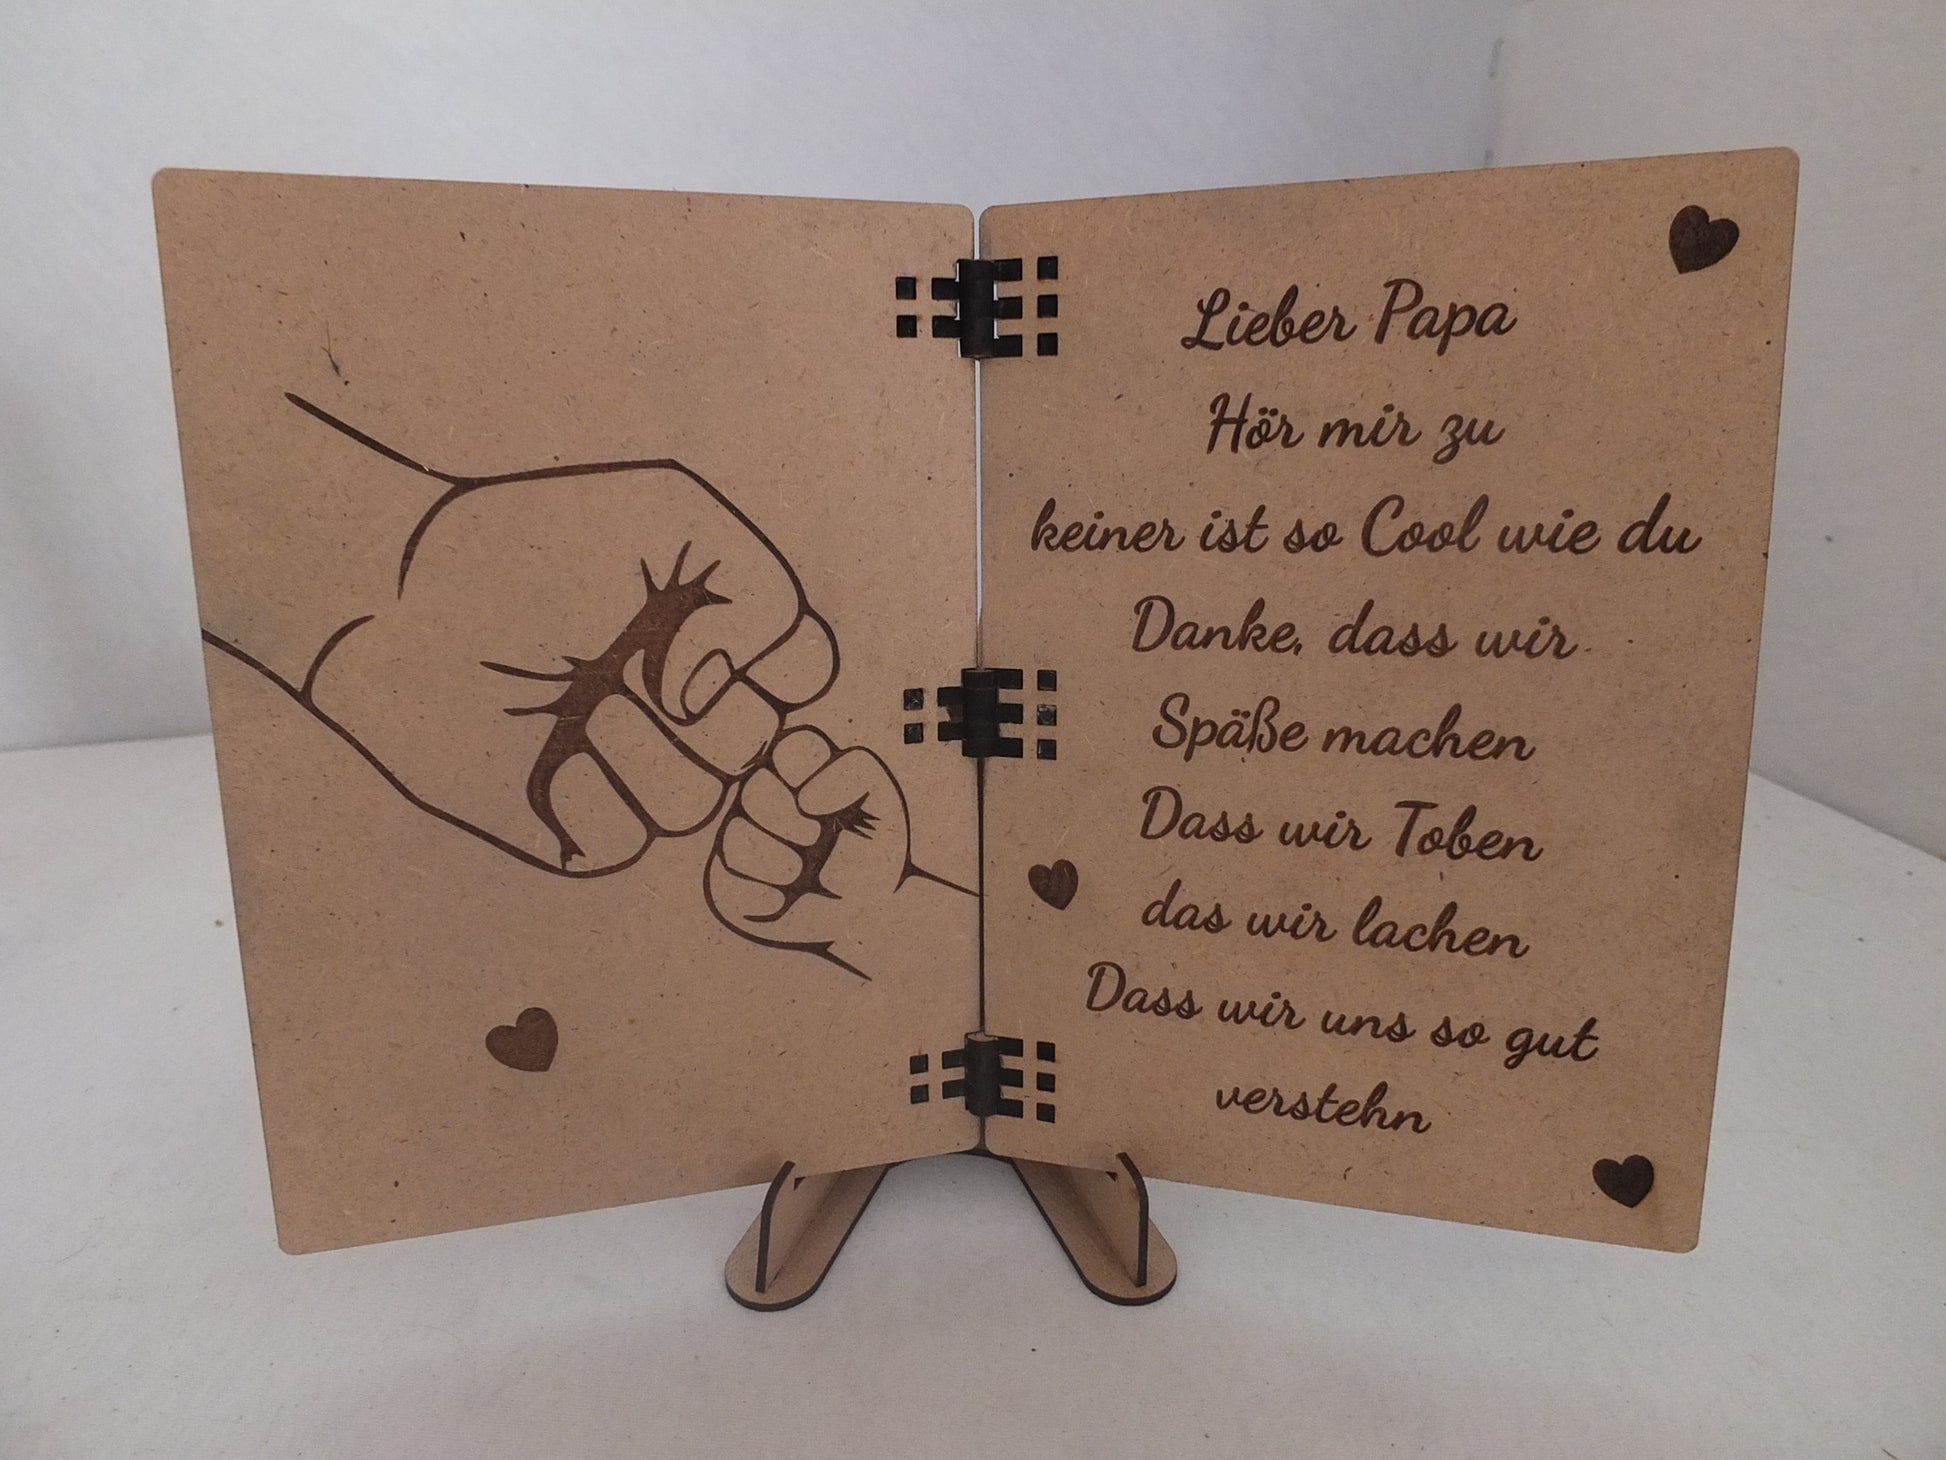 Lieber Papa
Hör mir zu
keiner ist so Cool wie du
Danke, dass wir
Späße machen
Dass wir Toben
das wir lachen
Dass wir uns so gut
verstehn